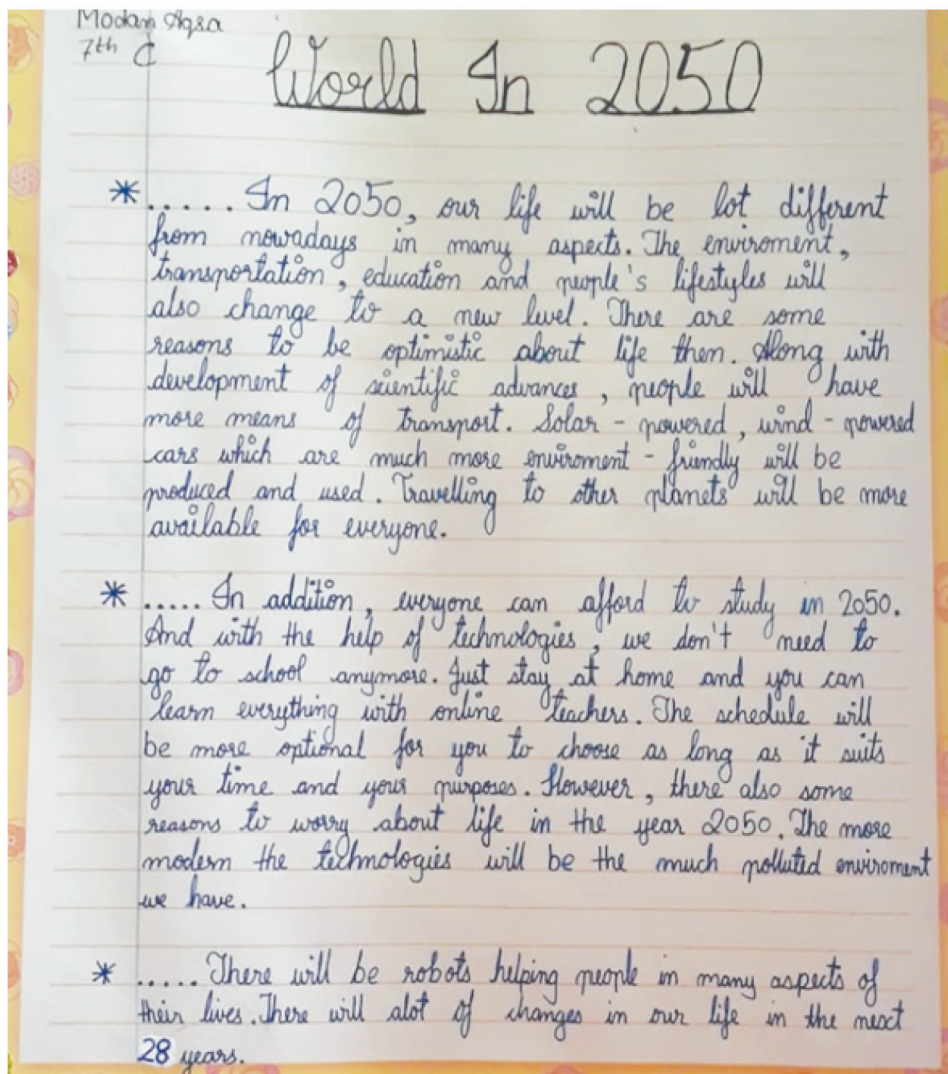 Modan Aqsa
7th C
World In 2050
* ..... In 2050, our life will be lot different
from nowadays in many aspects. The enviroment,
transportation, education and people's lifestyles will
also change to a new level. There are some
reasons to be optimistic about life then. Along with
development of scientific advances, people will have
more means of transport. Solar - powered, wind - powered
cars which are much more enviroment - friendly will be
produced and used. Travelling to other planets will be more
available for everyone.
* ..... In addition, everyone can afford to study in 2050.
And with the help of technologies, we don't need to
go to school anymore. Just stay at home and you can
learn everything with online teachers. The schedule will
be more optional for you to choose as long as it suits
your time and your purposes. However, there also some
reasons to worry about life in the year 2050. The more
modern the technologies will be the much polluted enviroment
we have.
* ..... There will be robots helping people in many aspects of
their lives. There will alot of changes in our life in the next
28 years.